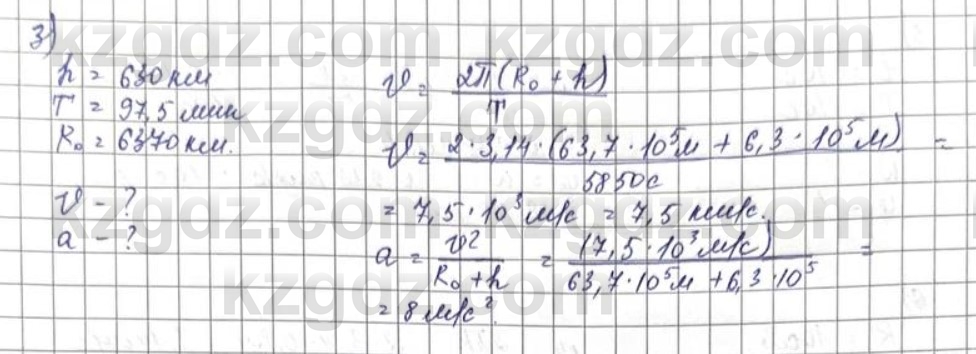 3)
h = 630 км
T = 97,5 мин
R₀ = 6370 км.
υ - ?
a - ?
υ = 2π(R₀ + h) / T
υ = 2·3,14·(63,7·10⁵м + 6,3·10⁵м) / 5850с =
= 7,5·10³м/с = 7,5 км/с.
a = υ² / R₀ + h = (7,5·10³м/с) / 63,7·10⁵м + 6,3·10⁵ =
= 8 м/с².
kzgdz.com kzgdz.com
kzgdz.com
kzgdz.com kzgdz.com
kzgdz.com